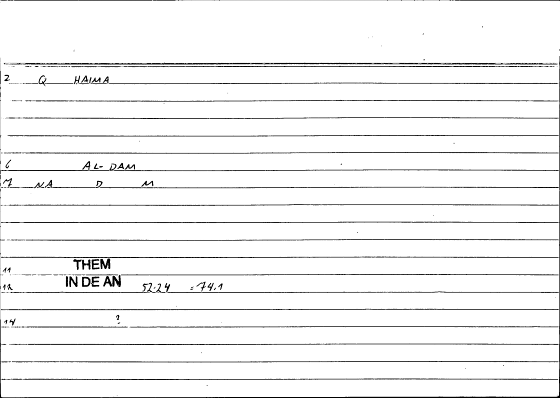 2 Q HAIMA
6 AL-DAM
7 NA D M
11 THEM
12 IN DE AN 52.24 = 74.1
14 ?